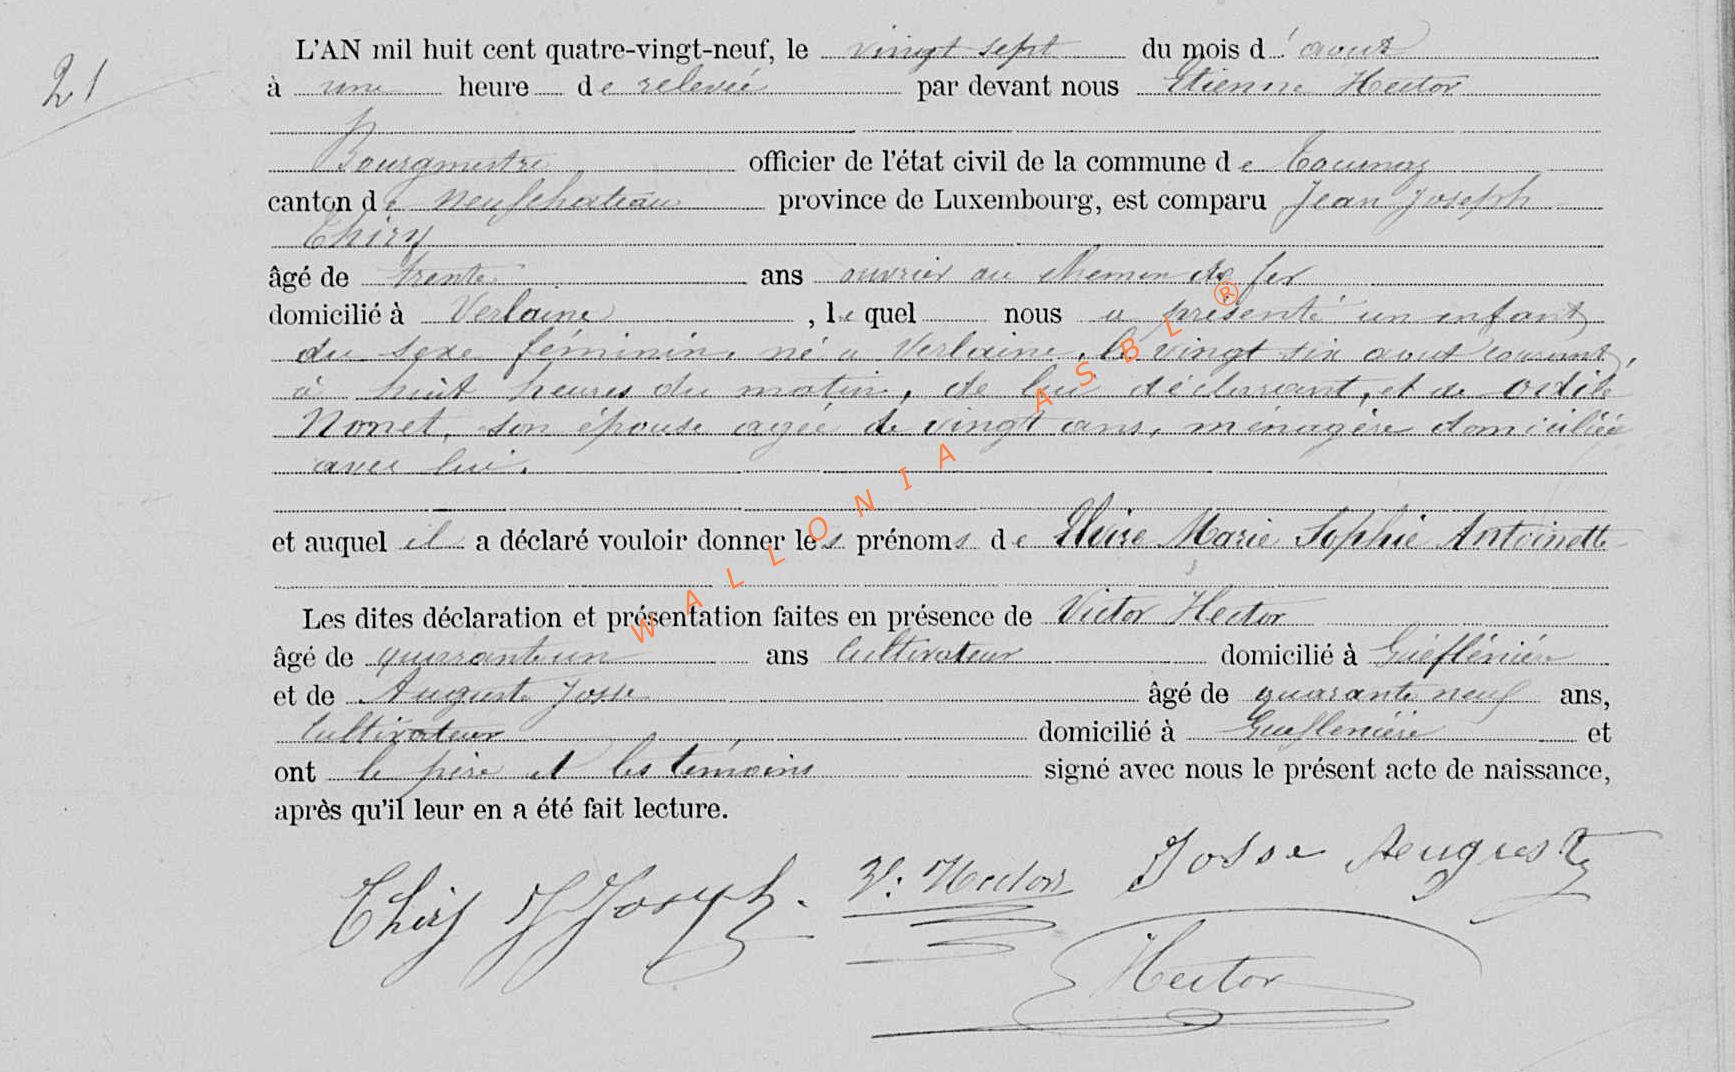 21
L'AN mil huit cent quatre-vingt-neuf, le vingt sept du mois d' aout
à une heure de relevée par devant nous Etienne Hector
Bourgmestre officier de l'état civil de la commune de Tournay
canton de Neufchateau province de Luxembourg, est comparu Jean Joseph
Thiry
âgé de trente ans ouvrier au chemin de fer
domicilié à Verlaine , lequel nous a présenté un enfant
du sexe féminin, né a Verlaine, le vingt six aout courant,
à huit heures du matin, de lui déclarant, et de Odile
Nonet, son épouse agée de vingt ans, ménagère domiciliée
avec lui.
et auquel il a déclaré vouloir donner les prénoms de Marie Sophie Antoinette
Les dites déclaration et présentation faites en présence de Victor Hector
âgé de quarante un ans Cultivateur domicilié à
et de Auguste Josse âgé de quarante neuf ans,
Cultivateur domicilié à et
ont le père et les témoins signé avec nous le présent acte de naissance,
après qu'il leur en a été fait lecture.
Thiry J Joseph. V. Hector Josse Auguste
Hector
WALLONIA ASBL ®